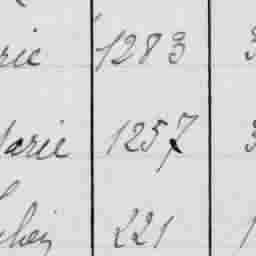 rie 1283 3
Marie 1257 3
221 1